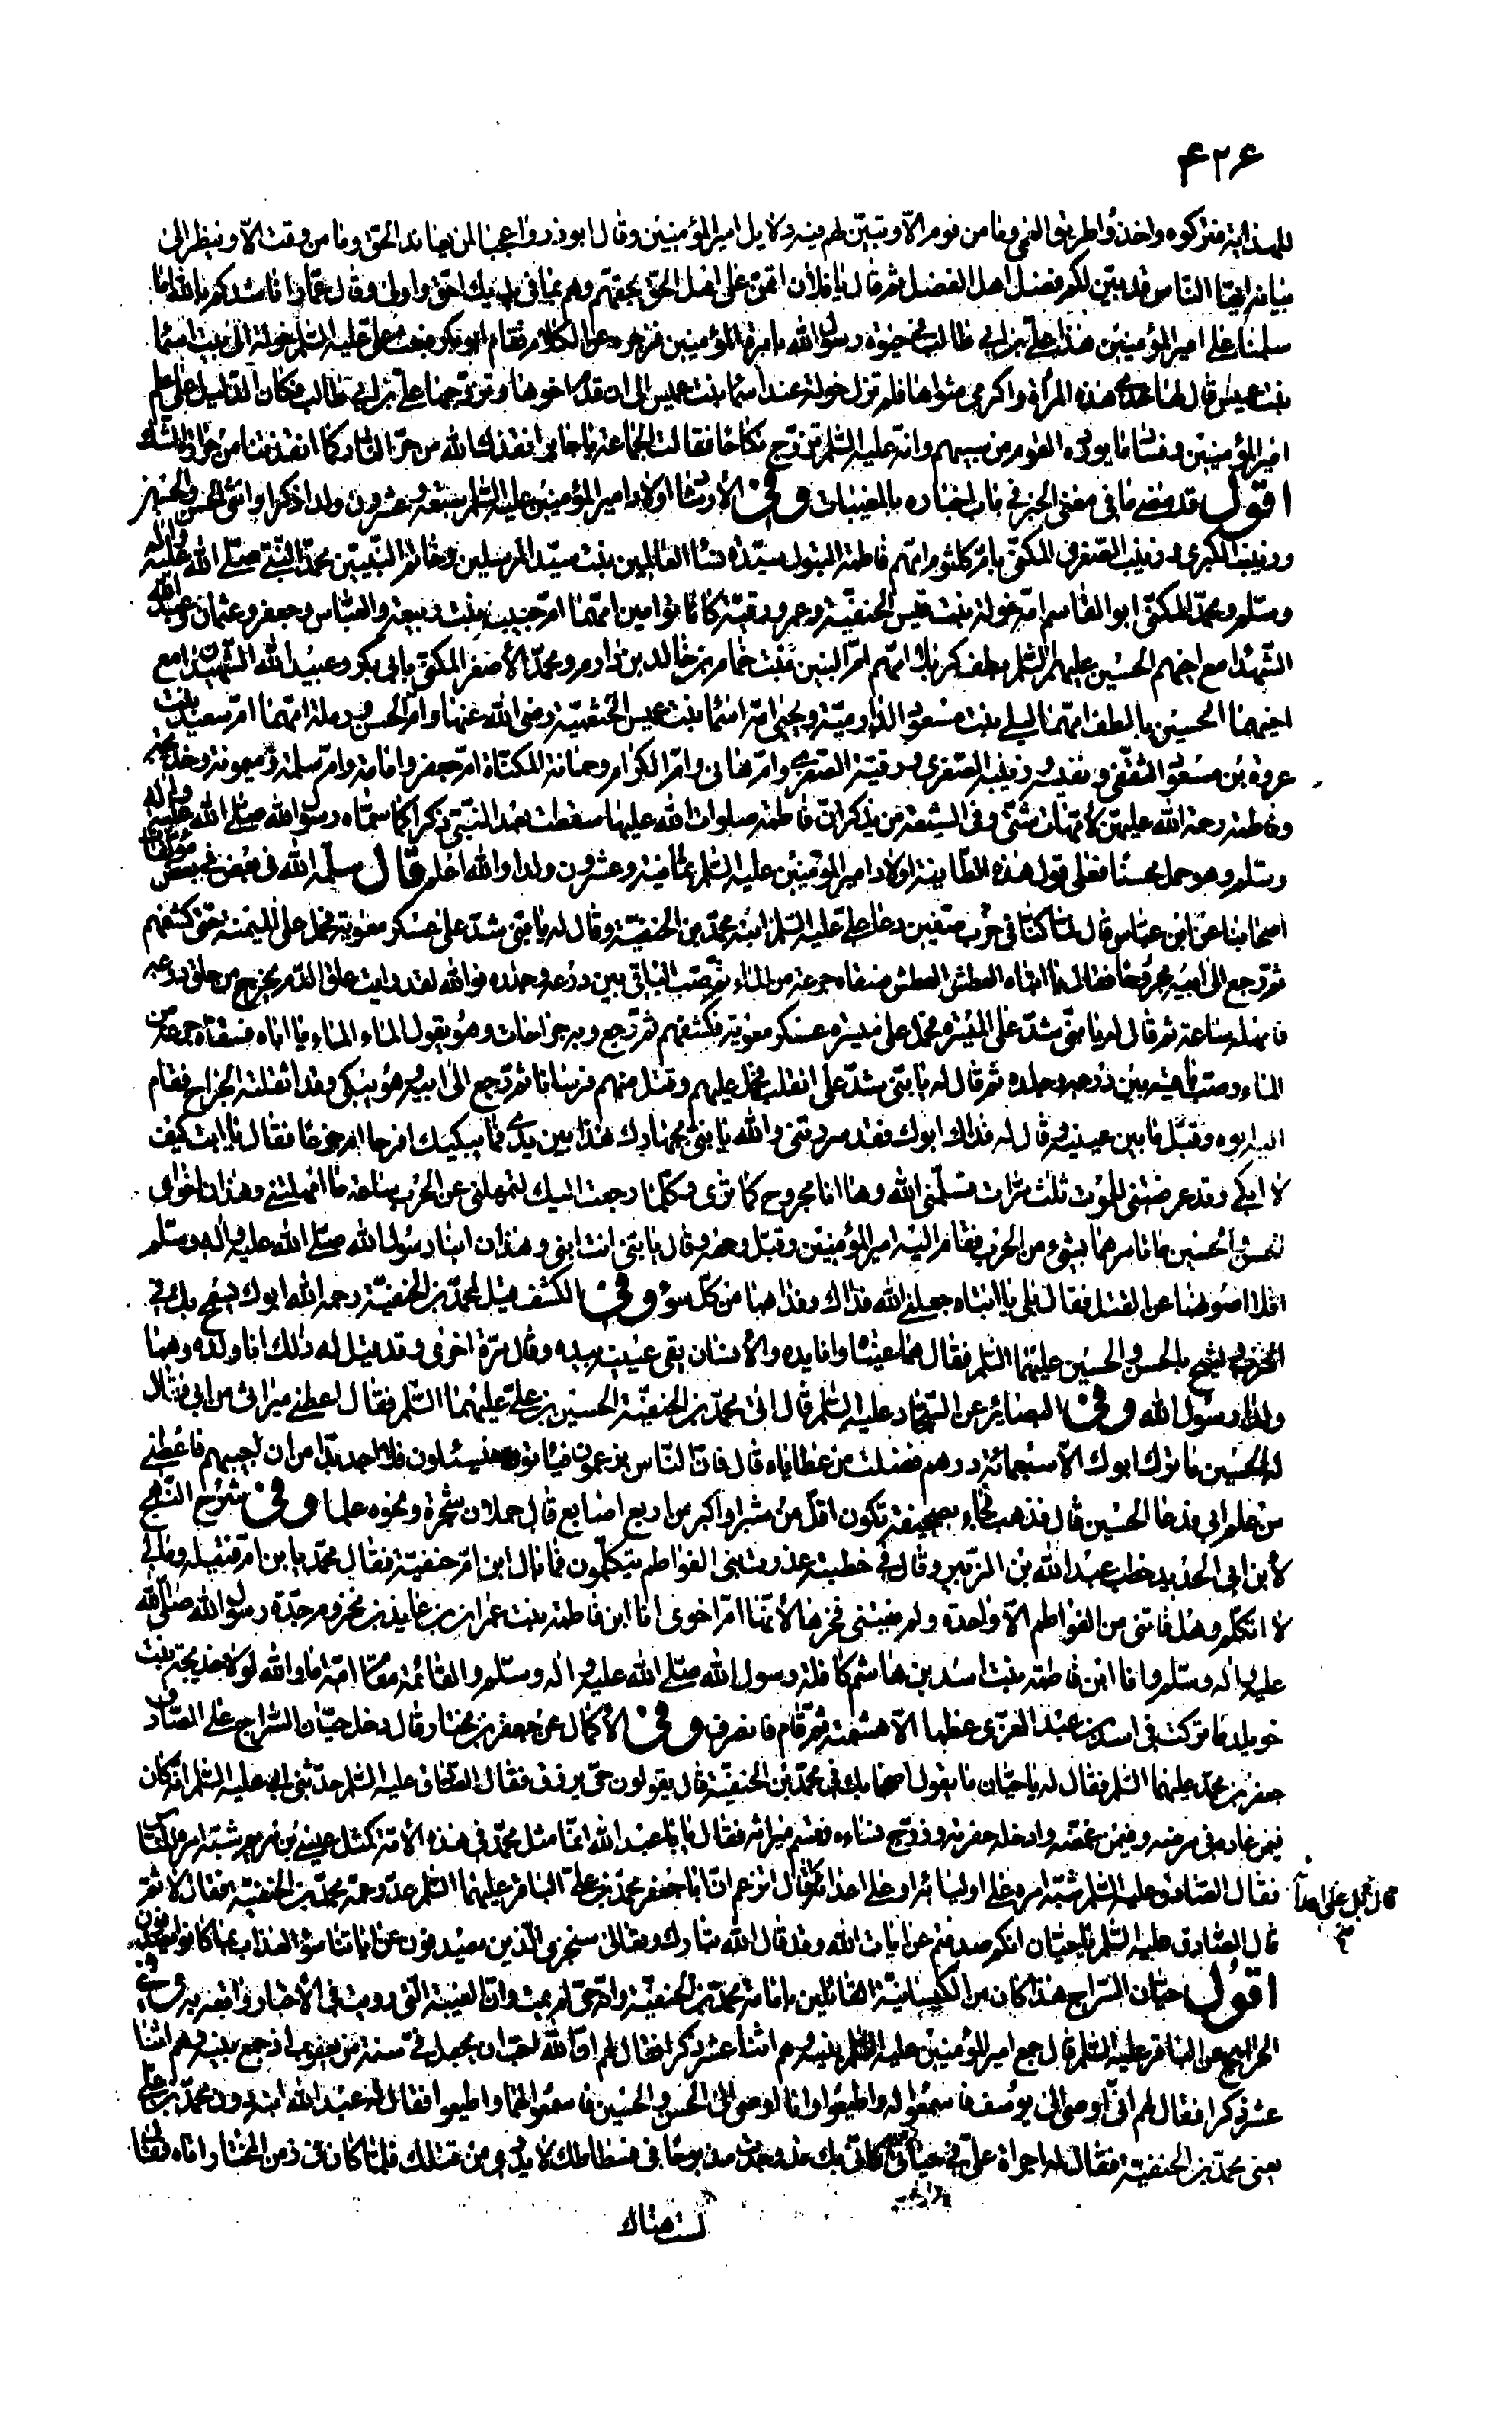 ۴۲۶
للهداية فتركوه واخذوا طريق العمى وما من قوم الّا وتبيّن لهم فيه دلايل امير المؤمنين وقال ابوذر واعجبا لمن يعاند الحق وما من وقت الّا وينظر الى
بيانه ايها الناس قد تبيّن لكم فضل اهل الفضل ثم قال يا فلان اتمن على اهل الحقّ بحقهم وهم بما في يديك احقّ واولى وقال عمّار اناشدكم بالله اما
سلمنا على امير المؤمنين هذا علي بن ابي طالب في حيوة رسول الله بامرة المؤمنين فزجره عن الكلام فقام ابو بكر وبعث علي عليه السّلم خولة الى بيت اسما
بنت عميس قال لها خذي هذه المرأة واكرمي مثواها فلم تزل خولة عند اسما بنت عميس الى ان قدم اخوها وتزوّجها علي بن ابي طالب فكان الدّليل على علم
امير المؤمنين وفساد ما يورده القوم من سبيهم وانّه عليه السّلم تزوّج نكاحا فقالت الجماعة يا جابر انقذك الله من حرّ النار كما انقذتنا من حرارة الشك
اقول قد مضى ما في معنى الخبر في باب اخباره بالمغيبات وفي الأرشاد اولاد امير المؤمنين عليه السّلم سبعة وعشرون ولدا ذكرا وانثى الحسن والحسين
وزينب الكبرى وزينب الصغرى المكنّى بامّ كلثوم امهم فاطمة البتول سيّدة نساء العالمين بنت سيّد المرسلين وخاتم النّبيّين محمّد النّبيّ صلّى الله عليه واله
وسلم ومحمّد المكنّى ابو القاسم امّه خولة بنت قيس الحنفيّة وعمر ورقيّة كانا توامين امّهما امّ حبيب بنت ربيعة والعبّاس وجعفر وعثمان وعبد الله
الشّهداء مع اخيهم الحسين عليهم السّلم بطف كربلا امّهم امّ البنين بنت حزام بن خالد بن دارم ومحمّد الأصغر المكنّى بابي بكر وعبيد الله الشّهيدان مع
اخيهما الحسين بالطف امّهما ليلى بنت مسعود الدارميّة ويحيى امّه اسما بنت عميس الخثعميّة رضي الله عنها وامّ الحسن ورملة امّهما امّ سعيد بنت
عروة بن مسعود الثقفي ونفيسه وزينب الصّغرى ورقيّة الصّغرى وامّ هاني وامّ الكرام وجمانة المكنّاة امّ جعفر وامامة وامّ سلمة وميمونة وخديجة
وفاطمة رحمة الله عليهنّ لأمّهات شتّى وفي الشيعة من يذكر انّ فاطمة صلوات الله عليها سقطت بعد النّبيّ ذكرا كان سمّاه رسول الله صلّى الله عليه واله
وسلم وهو حمل محسنا فعلى قول هذه الطّايفة اولاد امير المؤمنين عليه السّلم ثمانية وعشرون ولدا والله اعلم قال سلّمه الله في بعض مؤلّفات
اصحابنا عن ابن عبّاس قال لمّا كنّا في حرب صفين دعا علي عليه السّلم ابنه محمّد بن الحنفيّة وقال له يا بني شدّ على عسكر معوية فحمل على الميمنة حتى كشفهم
ثم رجع الى ابيه مجروحا فقال يا ابتاه العطش العطش فسقاه جرعة من الماء ثم صبّ الباقي بين درعه وجلده فوالله لقد رايت علق الدّم يخرج من حلق درعه
فامهله ساعة ثم قال له يا بني شدّ على الميسرة فحمل على ميسرة عسكر معوية فكشفهم ثم رجع وبه جراحات وهو يقول الماء الماء يا اباه فسقاه جرعة من
الماء وصبّ باقيه بين درعه وجلده ثم قال له يا بنيّ شدّ على القلب فحمل عليهم وقتل منهم فرسانا ثم رجع الى ابيه وهو يبكي وقد اثقلته الجراح فقام
اليه ابوه وقبّل ما بين عينيه وقال له فداك ابوك فقد سررتني والله يا بنيّ بجهادك هذا بين يدي فما يبكيك افرحا ام جزعا فقال يا ابت كيف
لا ابكي وقد عرضتني للموت ثلث مرّات فسلّمني الله وها انا مجروح كما ترى وكلّما رجعت اليك لتمهلني عن الحرب ساعة ما امهلتني وهذان اخواي
الحسن والحسين ما تامرهما بشيء من الحرب فقام اليه امير المؤمنين وقبّل وجهه وقال يا بنيّ انت ابني وهذان ابنا رسول الله صلّى الله عليه واله وسلم
افلا اصونهما عن القتل فقال بلى يا ابتاه جعلني الله فداك وفداهما من كلّ سوء وفي الكشف قيل لمحمّد بن الحنفيّة رحمه الله ابوك يسمح بك في
الحرب ويشح بالحسن والحسين عليهما السّلم فقال هما عيناه وانا يده والأنسان يقي عينيه بيده وقال مرّة اخرى وقد قيل له ذلك انا ولده وهما
ولدا رسول الله وفي البصاير عن السّجّاد عليه السّلم قال اتى محمّد بن الحنفيّة الحسين بن علي عليهما السّلم فقال اعطني ميراثي من ابي فقال
له الحسين ما ترك ابوك الّا سبعمائة درهم فضلت من عطاياه قال فانّ النّاس يزعمون فياتون فيسئلون فلا اجد بدّا من ان اجيبهم فاعطني
من علم ابي فدعا الحسين قال فذهب فجاء بصحيفة تكون اقلّ من شبر او اكبر من اربع اصابع قال فملات شجرة ونحوه علما وفي شرح النّهج
لأبن ابي الحديد خطب عبد الله بن الزّبير وقال في خطبته عذرت بني الفواطم يتكلّمون فما بال ابن امّ حنفيّة فقال محمّد يا بن امّ قتيلة ومالي
لا اتكلّم وهل فاتني من الفواطم الّا واحدة ولم يفتني فخرها لأنّها امّ اخوي انا ابن فاطمة بنت عمران بن عايذ بن مخزوم جدّة رسول الله صلّى الله
عليه واله وسلم وانا ابن فاطمة بنت اسد بن هاشم كافلة رسول الله صلّى الله عليه واله وسلم والقائمة مقام امّه اما والله لولا خديجة بنت
خويلد ما تركت في اسد بن عبد العزى عظما الّا هشمته ثم قام فانصرف وفي الأكمال عن جعفر بن مختار قال دخل حيّان السّراج على الصّادق
جعفر بن محمّد عليهما السّلم فقال له يا حيّان ما يقول اصحابك في محمّد بن الحنفيّة قال يقولون حيّ يرزق فقال الصّادق عليه السّلم حدّثني ابي عليه السّلم انه كان
فيمن عاده في مرضه وفيمن غمّضه وادخله حفرته وزوّج نساءه وقسم ميراثه فقال يا ابا عبد الله انّما مثل محمّد في هذه الأمّة كمثل عيسى بن مريم شبّه امره للنّاس
فقال الصّادق عليه السّلم شبّه امره على اوليائه او على اعدائه قال اتزعم انّ ابا جعفر محمّد بن علي الباقر عليهما السّلم عدوّ عمّه محمّد بن الحنفيّة فقال لا ثم
قال بل على اعدائه
قال الصّادق عليه السّلم يا حيّان انكم صدفتم عن ايات الله وقد قال الله تبارك وتعالى سنجزي الّذين يصدفون عن اياتنا سوء العذاب بما كانوا يصدفون
اقول حيّان السّراج هذا كان من الكيسانيّة القائلين بامامة محمّد بن الحنفيّة وانّه حيّ لم يمت وانّ الغيبة الّتي رويت في الأخبار واقعة به وفي
الخرايج عن الباقر عليه السّلم قال جمع امير المؤمنين عليه السّلم بنيه وهم اثنا عشر ذكرا فقال لهم انّ الله احبّ ان يجعل فيّ سنّة من يعقوب اذ جمع بنيه وهم اثنا
عشر ذكرا فقال لهم انّي اوصي الى يوسف فاسمعوا له واطيعوا وانا اوصي الى الحسن والحسين فاسمعوا لهما واطيعوا فقال له عبد الله ابنه دون محمّد بن علي
يعني محمّد بن الحنفيّة فقال له اجراة عليّ في حياتي كانّي بك قد وجدت مذبوحا في فسطاطك لا يدرى من قتلك فلمّا كان في زمن المختار اتاه فقال
لست هناك